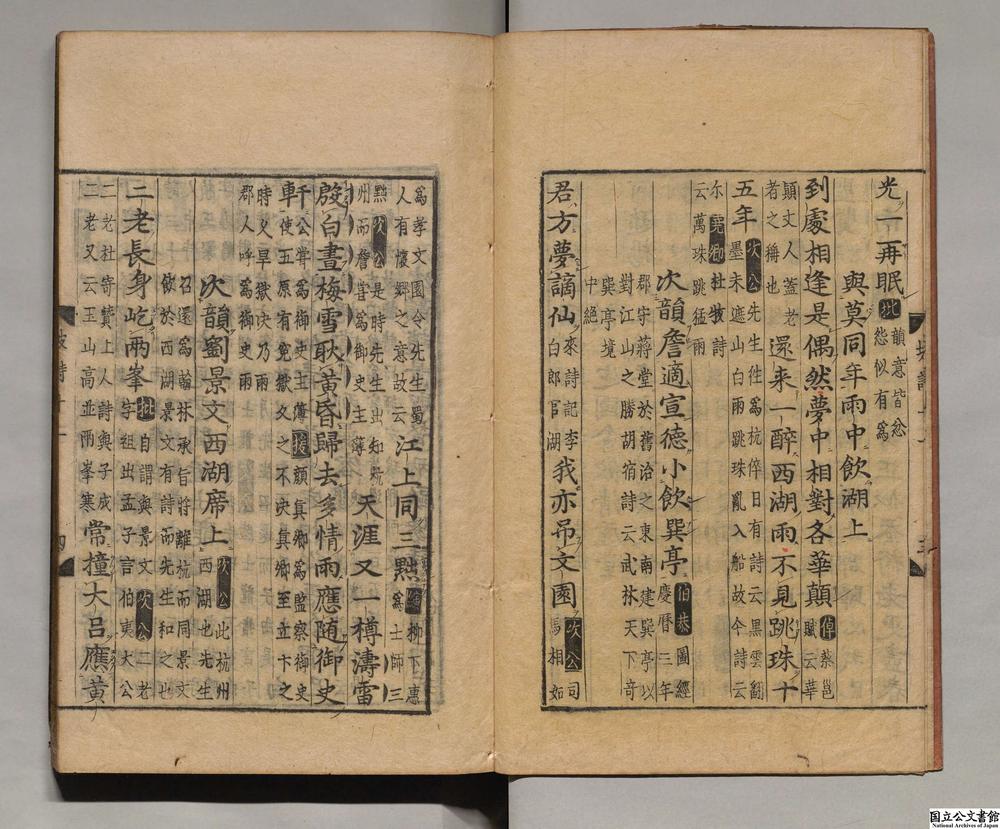 光一再眠批韻意皆忿
怨似有為
與莫同年雨中飲湖上
到處相逢是偶然夢中相對各華顛倬蔡邕
賦云華
顛文人蓋老
者之稱也還来一醉西湖雨不見跳珠十
五年次公先生徃為杭倅日有詩云黒雲飜
墨未遮山白雨跳珠亂入船故今詩云
尓堯卿杜牧詩
云萬珠跳猛雨
次韻詹適宣德小飲巽亭伯恭圖經
慶曆三年
郡守蔣堂於舊治之東南建巽亭以
對江山之勝胡宿詩云武林天下奇
巽亭境
中絕
君方夢謫仙來詩記李
白郎官湖我亦吊文園次公司
馬相如
為孝文園令先生蜀
人有懷鄉之意故云江上同三黜柳下惠
為士師三
黜次公是時先生出知杭
州而詹甞為御史主薄天涯又一樽濤雷
殷白晝梅雪耿黄昏歸去多情雨應随御史
軒公甞為御史主薄援顔真卿為監察御史
使五原有寃獄久之不決真卿至立卞之
時久旱獄决乃雨
郡人呼為御史雨
次韻劉景文西湖席上次公此杭州
西湖也先生
召還為翰林承旨将離杭而同景文
飲於西湖景文有詩而先生和之也
二老長身屹兩峯批自謂與景文次公二老
字祖出孟子言伯夷大公
二老杜寄贊上人詩與子成
二老又云玉山高並兩峯寒常撞大吕應黄
國立公文書館
National Archives of Japan